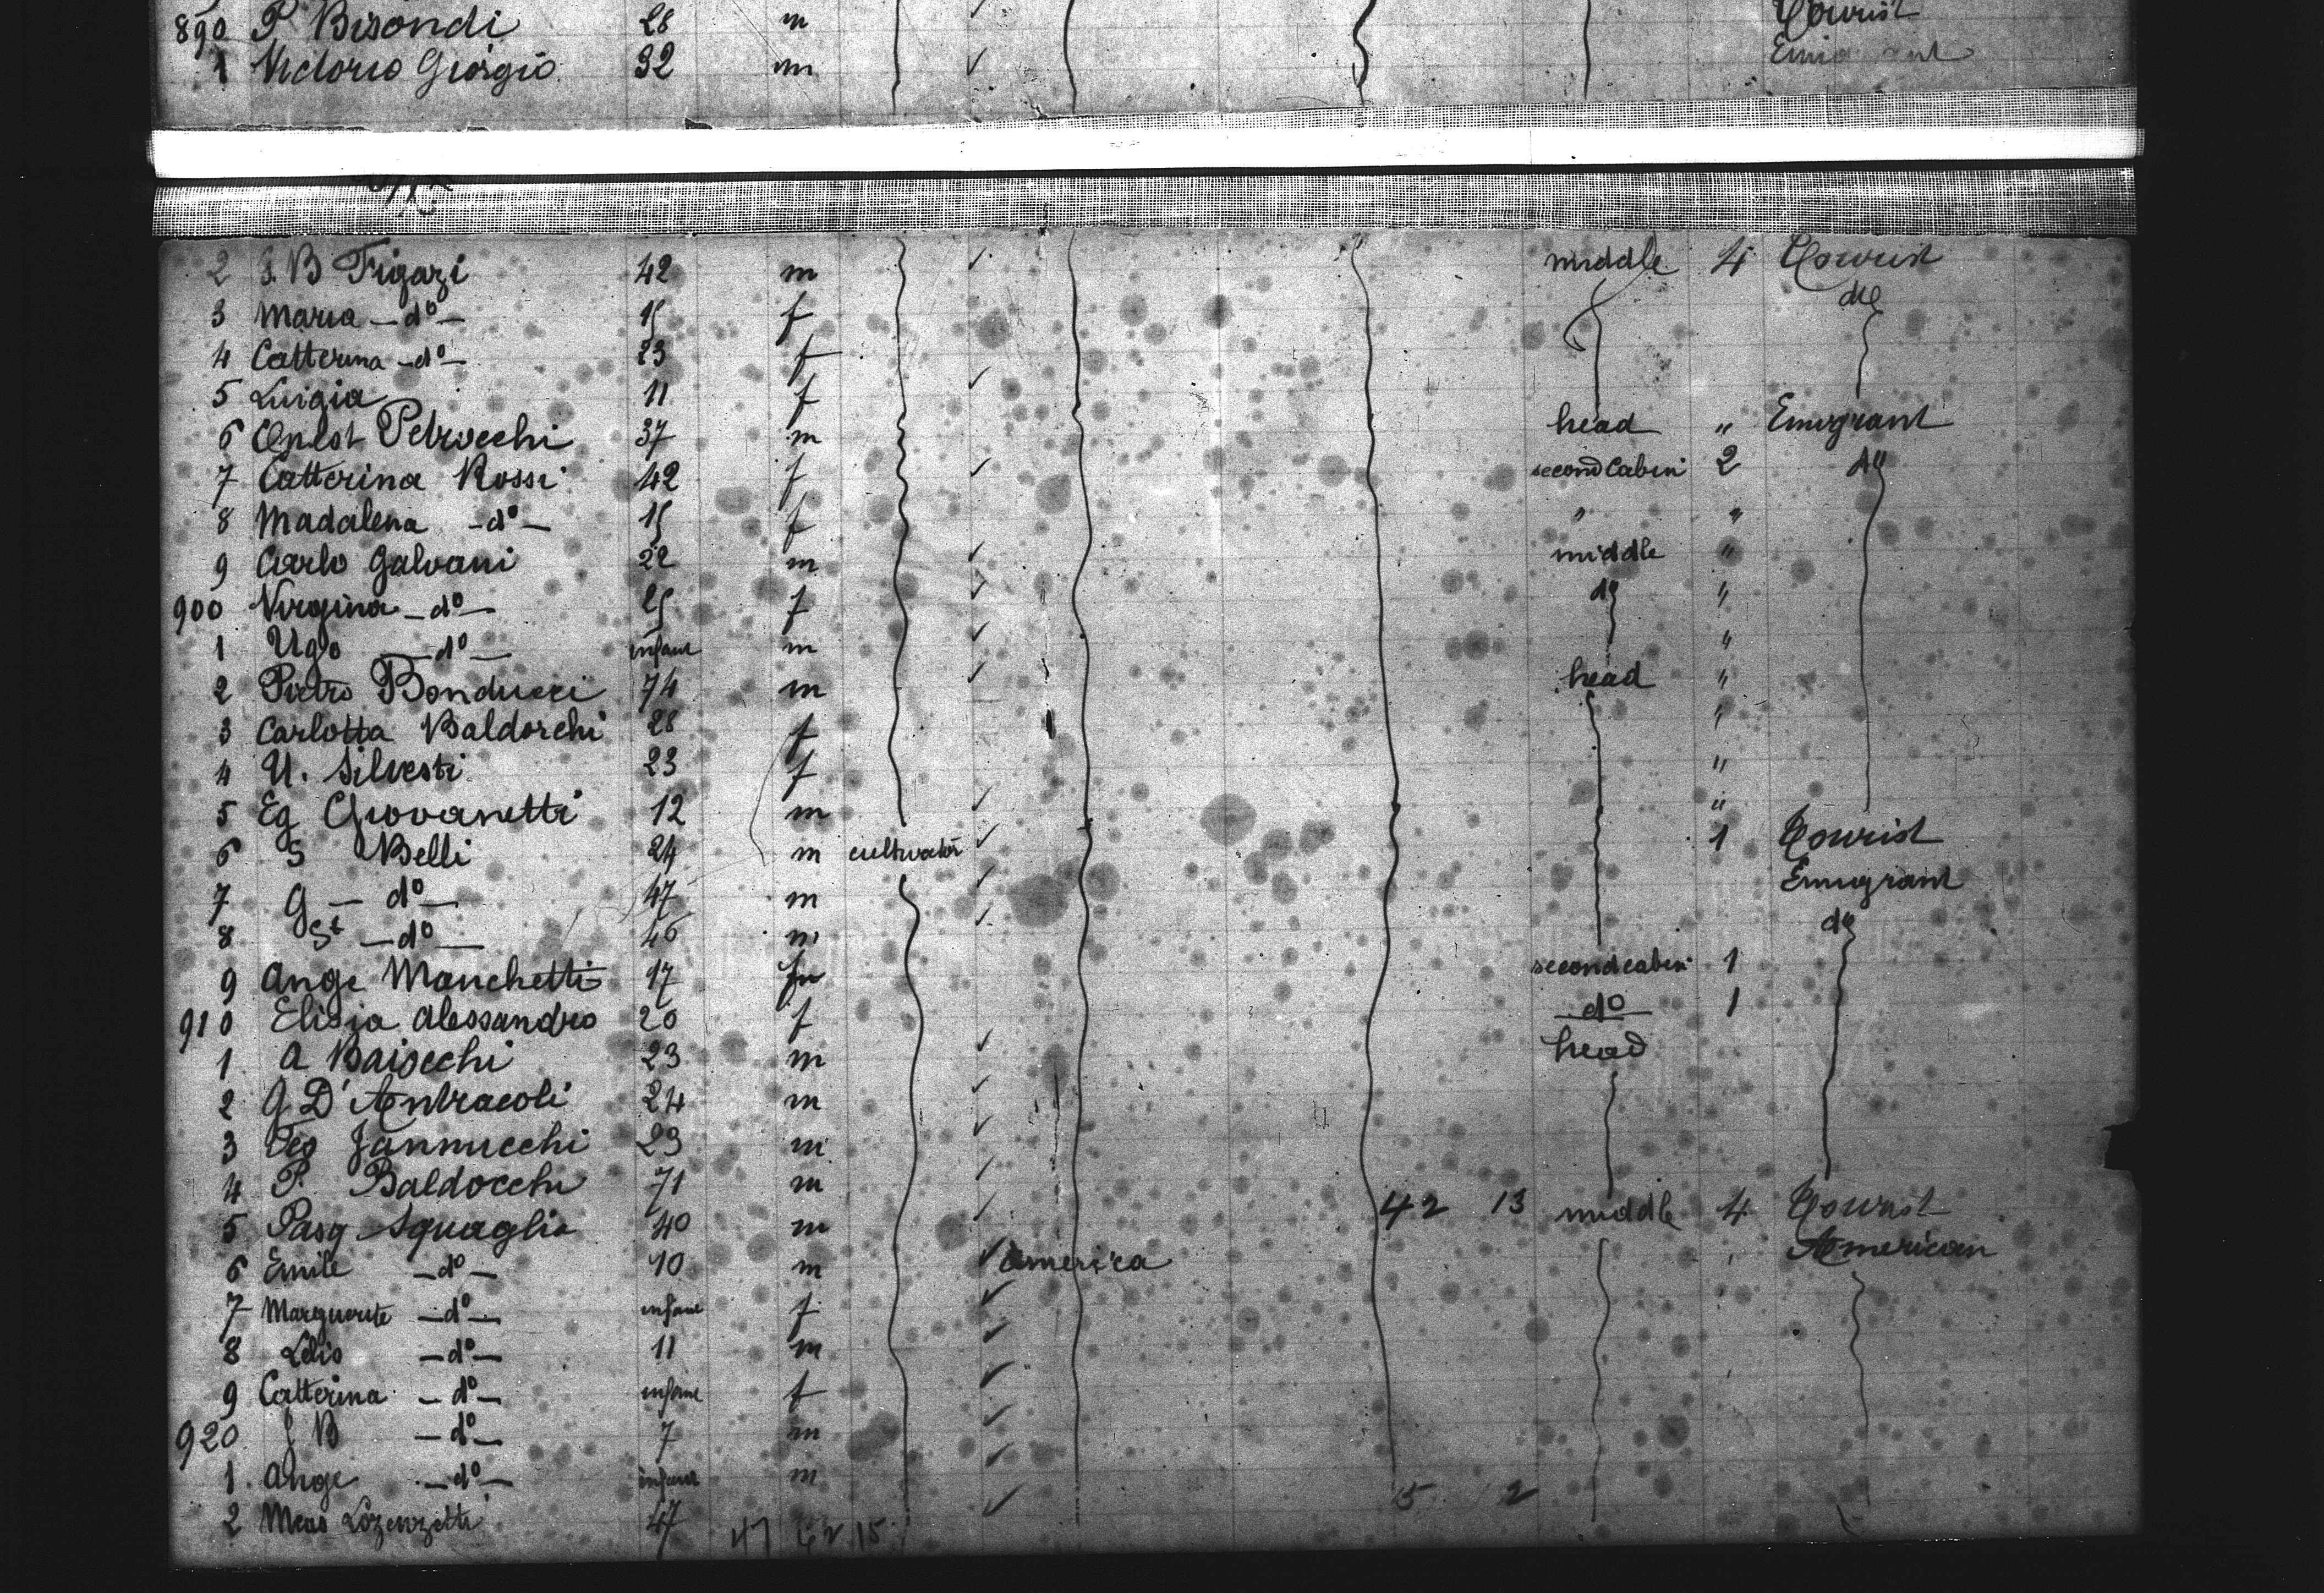 890 P. Bisondi 28 m Tourist
1 Victorio Giorgio 32 m ✓ Emigrant
2 J. B Frigazi 42 m ✓ middle 4 Tourist
3 Maria —do— 15 f do
4 Catterina —do— 23 f
5 Luigia 11 f ✓
6 Onest Petrocchi 37 m head " Emigrant
7 Catterina Rossi 42 f ✓ second Cabin 2 do
8 Madalena —do— 15 f " "
9 Carlo Galvani 22 m ✓ middle "
900 Virginia —do— 25 f ✓ do "
1 Ugo —do— infant m ✓ "
2 Pietro Bonducci 74 m ✓ head "
3 Carlotta Baldorchi 28 f "
4 U. Silvesti 23 f "
5 Eg Giovanetti 12 m ✓ "
6 S Belli 24 m cultivator ✓ 1 Tourist
7 G —do— 47 m ✓ Emigrant
8 St —do— 46 m ✓ do
9 Ange Manchetti 17 second cabin 1
910 Elisja Alessandro 20 f do 1
1 A Baiocchi 23 m ✓ head
2 G D'Antracoli 24 m ✓
3 Jannucchi 23 m ✓
4 P. Baldocchi 71 m ✓
5 Pasq Squaglia 40 m ✓ 42 13 middle 4 Tourist
6 Emile —do— 10 m ✓ America American
7 Marguerite —do— infant f ✓
8 Lelio —do— 11 m ✓
9 Catterina —do— infant f ✓
920 J B —do— 7 m ✓
1 Ange —do— infant m ✓ 15 2
2 Meas Lozenzetti 47 ✓
47 62 15